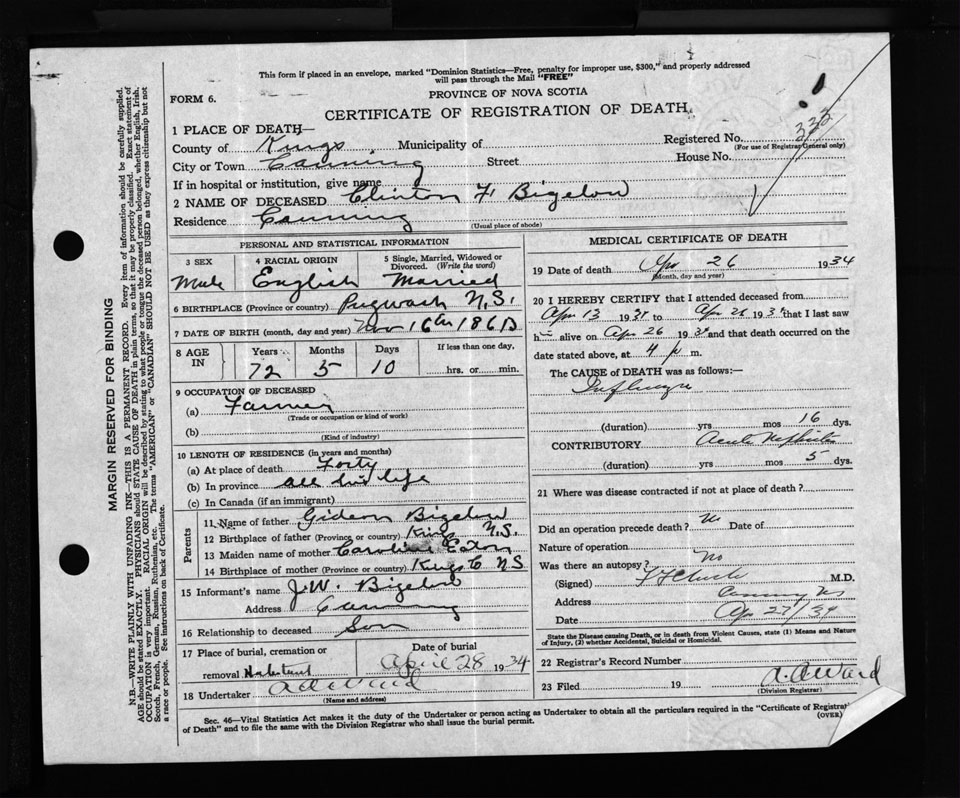 This form if placed in an envelope, marked "Dominion Statistics—Free, penalty for improper use, $300," and properly addressed
will pass through the Mail "FREE"
PROVINCE OF NOVA SCOTIA
FORM 6.
CERTIFICATE OF REGISTRATION OF DEATH
1 PLACE OF DEATH—
County of Kings Municipality of Registered No. 332
(For use of Registrar General only)
City or Town Canning Street House No.
If in hospital or institution, give name
2 NAME OF DECEASED Clinton F. Bigelow
Residence Canning
(Usual place of abode)
PERSONAL AND STATISTICAL INFORMATION
3 SEX 4 RACIAL ORIGIN 5 Single, Married, Widowed or Divorced. (Write the word)
Male English Married
6 BIRTHPLACE (Province or country) Pugwash N.S.
7 DATE OF BIRTH (month, day and year) Nov 16th 1861
8 AGE IN Years Months Days If less than one day,
72 5 10 hrs. or min.
9 OCCUPATION OF DECEASED
(a) Farmer
(Trade or occupation or kind of work)
(b)
(Kind of industry)
10 LENGTH OF RESIDENCE (in years and months)
(a) At place of death Forty
(b) In province all his life
(c) In Canada (if an immigrant)
Parents
11 Name of father Gideon Bigelow
12 Birthplace of father (Province or country) Kings N.S.
13 Maiden name of mother Caroline Eaton
14 Birthplace of mother (Province or country) Kings Co N S
15 Informant's name J.W. Bigelow
Address Canning
16 Relationship to deceased Son
17 Place of burial, cremation or Date of burial
removal April 28 1934
18 Undertaker A A Ward
(Name and address)
MEDICAL CERTIFICATE OF DEATH
19 Date of death Apr 26 1934
(Month, day and year)
20 I HEREBY CERTIFY that I attended deceased from
Apr 13 1934 to Apr 26 1934 that I last saw
h alive on Apr 26 1934 and that death occurred on the
date stated above, at 4 p m.
The CAUSE of DEATH was as follows:—
Influenza
(duration) yrs mos 16 dys.
CONTRIBUTORY Acute Nephritis
(duration) yrs mos 5 dys.
21 Where was disease contracted if not at place of death?
Did an operation precede death? No Date of
Nature of operation
Was there an autopsy? No
(Signed) M.D.
Address Canning NS
Date Apr 27/34
State the Disease causing Death, or in death from Violent Causes, state (1) Means and Nature
of Injury, (2) whether Accidental, Suicidal or Homicidal.
22 Registrar's Record Number
23 Filed 19 A. A. Ward
(Division Registrar)
Sec. 46—Vital Statistics Act makes it the duty of the Undertaker or person acting as Undertaker to obtain all the particulars required in the "Certificate of Registrati
of Death" and to file the same with the Division Registrar who shall issue the burial permit. (OVER)
MARGIN RESERVED FOR BINDING
N.B.—WRITE PLAINLY WITH UNFADING INK—THIS IS A PERMANENT RECORD. Every item of information should be carefully supplied.
AGE should be stated EXACTLY. PHYSICIANS should STATE CAUSE OF DEATH in plain terms, so that it may be properly classified. Exact statement of
OCCUPATION is very important. RACIAL ORIGIN will be described by stating to what people or tongue the deceased person belonged, whether English, Irish,
Scotch, French, German, Russian, Ruthenian, etc. The terms "AMERICAN" or "CANADIAN" SHOULD NOT BE USED as they express citizenship but not
a race or people. See instructions on back of Certificate.